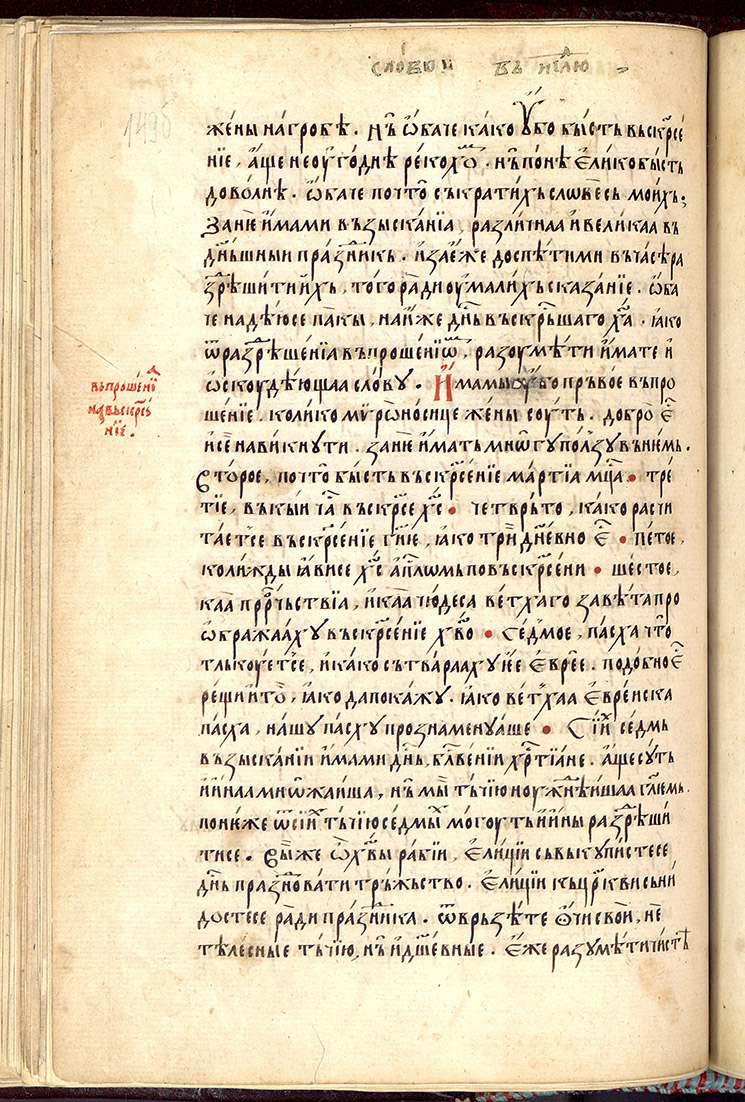 сло́во и҃ въ нⷣѣ́лю
149б
же́ны на гро́бѣ . нъ҆̀ ѡ҆́баче ка́ко ᲂу҆́бо бы́сть въскр҃се́
нїе , а҆́ще не ᲂу҆го́днѣ реко́хѡⷨ . нъ҆̀ по́нѣ є҆ли́ко бы́сть
дово́лнѣ . ѡ҆́баче почто̀ съкрати́хъ слѡве́сь мои́хъ ;
Занѐ и҆́мами възыска́нїа , разли́чнаа и҆ вели́каа въ
дн҃ьшнїи пра́зⷣникь . и҆
ра́зⷣрѣши́ти и҆́хь , того̀ ра́ди ᲂу҆мали́хъ сказа́нїе . ѡ҆́ба
че надѣ́юсе па́кы , на и҆́же дн҃ь въскрь́сшаго хⷭ҇а . ꙗ҆́ко
ѿ разⷣрѣше́нїа въпроше́нїѡⷨ , разᲂумѣ́ти и҆́мате и҆
ѡ҆скᲂудѣ́ющаа сло́вᲂу . И҆́мамы ᲂу҆́бо пръ́вое въпро
ше́нїе . коли́ко мѵ̈рѡно́сице же́ны сᲂу́ть . добро̀ є҆ⷭ҇
и҆ сѐ нави́кнᲂути . занѐ и҆́мать мнѡ́гᲂу по́лзᲂу въ не́мь .
Въто́рое , почто̀ бы́сть въскр҃се́нїе ма́ртїа мцⷭ҇а . тре́
тїе , въ кы́и ча́ⷭ въскр҃се хⷭ҇ь . четвръ́то , ка́ко расчи
та́етсе въскр҃се́нїе гн҃ѥ , ꙗ҆́ко трⷣи дн҃е́вно є҆ⷭ҇ . пе́тое ,
коли́жды ꙗ҆ви́се хⷭ҇ь апⷭ҇лѡмь по въскр҃се́ни . ше́стое ,
ка́а прⷪ҇рчьствїа , и҆ ка́а чю́деса ве́тхаго завѣ́та про
ѡ҆бража́ахᲂу въскр҃се́нїе хв҃о . се́дⷨмое , па́сха что̀
тлькᲂуе́тсе , и҆ ка́ко сътвара́ахᲂу ю҆ є҆вре́є . подо́бно є҆ⷭ҇
рещѝ и҆ то̀ , ꙗ҆́ко да покажᲂу̀ . ꙗ҆́ко ве́тхаа є҆вре́иска
па́сха , на́шᲂу па́схᲂу прознаменᲂу́аше . Сїи́хь се́дмь
възыска́нїи и҆́мами дн҃ь , бл҃гве́нїи хрⷭ҇тїа́не . а҆́ще сᲂу́ть
и҆ и҆́наа мнѡжа́иша , нъ҆̀ мы̀ тъ́чїю нᲂу́жⷣнѣишаа гл҃емь .
по́ниже ѿ сїи́хь тъ́чїю се́дмыⷯ мо́гᲂуть и҆ и҆́ны разⷣрѣши́
тисе . вы́ же ѡ҆̀ хв҃ы ра́бїи , є҆ли́цїи съвькᲂупи́стесе
дн҃ь пра́зⷣновати тръ́жьство . є҆ли́цїи къ цр҃кви сьни
до́стесе ра́ди пра́зⷣника . ѿврьзѣ́те ѻ҆́чи свои̑ , не
тѣле́сные тъ́чїю , нъ҆̀ и҆ дш҃е́вные . є҆́же разᲂумѣ́ти чи́стѣ
въпроше́нїа
на въскр҃се́
нїе .